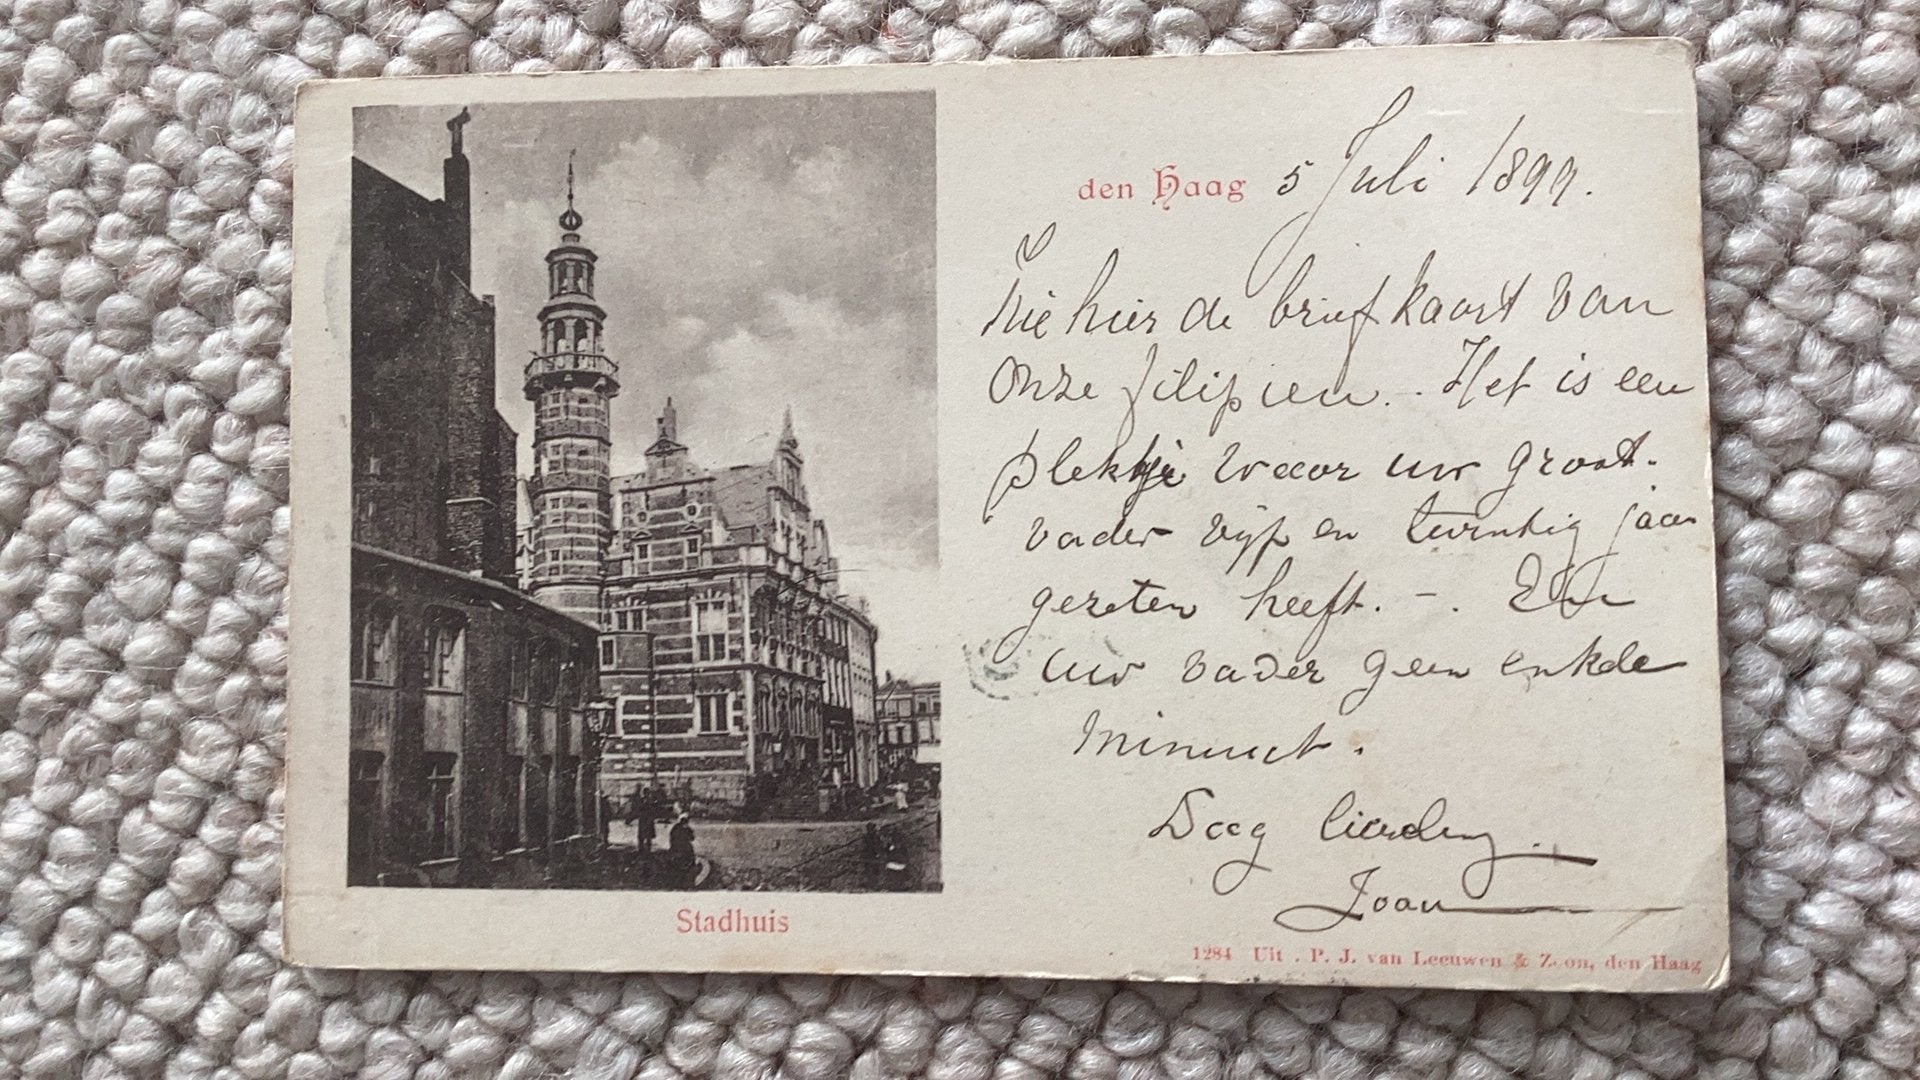 den Haag 5 Juli 1899.
Zie hier de briefkaart van
onze filipien. - Het is een
plekje waar uw groot-
vader vijf en twintig jaar
gezeten heeft. - . En
uw vader geen enkele
minuut.
Daag lieveling.
Joan
Stadhuis
1284 Uit. P. J. van Leeuwen & Zoon, den Haag